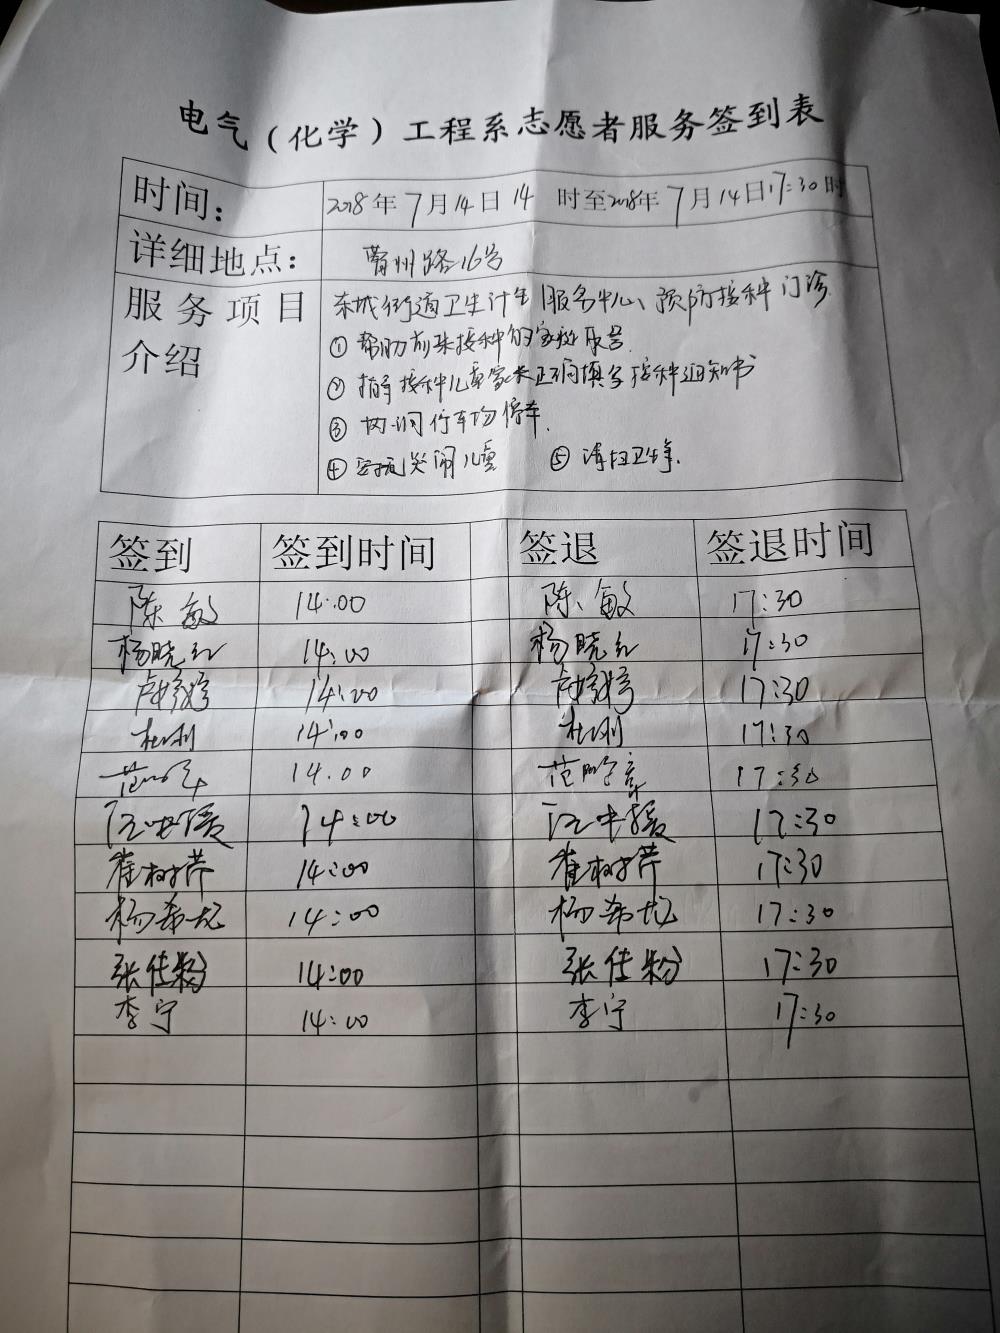 电气（化学）工程系志愿者服务签到表
时间： 2018年7月14日14 时至2018年7月14日17:30时
详细地点： 州路16号
服务项目介绍 东城街道卫生计生服务中心、预防接种门诊
① 帮助前来接种的家长取号
② 指导接种儿童家长正确填写接种通知书
③ 协调停车场停车.
④ 安抚哭闹儿童 ⑤ 清扫卫生等.
签到 签到时间 签退 签退时间
陈敏 14:00 陈敏 17:30
杨晓红 14:00 杨晓红 17:30
卢婷婷 14:00 卢婷婷 17:30
杜刚 14:00 杜刚 17:30
范 14:00 范 17:30
14:00 17:30
崔树芹 14:00 崔树芹 17:30
杨希龙 14:00 杨希龙 17:30
张佳粉 14:00 张佳粉 17:30
李宁 14:00 李宁 17:30